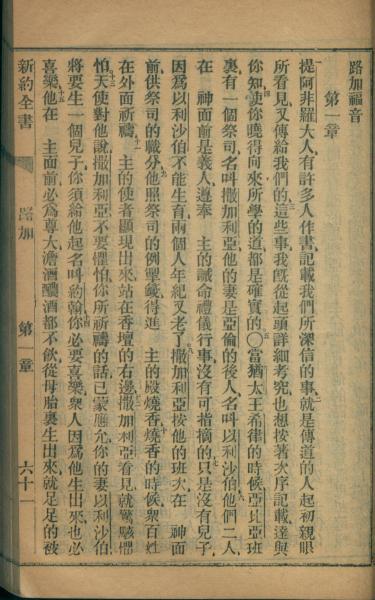 路加福音
第一章
提阿非羅大人有許多人作書記載我們所深信的事就是傳道的人起初親眼
所看見又傳給我們的這些事我旣從起頭詳細考究也想按著次序記載達與
你知使你曉得向來所學的道都是確實的○當猶太王希律的時候亞比亞班
裏有一個祭司名叫撒加利亞他的妻是亞倫的後人名叫以利沙伯他們二人
在 神面前是義人遵奉 主的誡命禮儀行事沒有可指摘的只是沒有兒子
因爲以利沙伯不能生育兩個人年紀又老了撒加利亞按他的班次在 神面
前供祭司的職分他照祭司的例掣籤得進 主的殿燒香燒香的時候衆百姓
在外面祈禱 主的使者顯現出來站在香壇的右邊撒加利亞看見就驚駭懼
怕天使對他說撒加利亞不要懼怕你所祈禱的話已蒙應允你的妻以利沙伯
將要生一個兒子你須給他起名叫約翰你必要喜樂衆人因爲他生出來也必
喜樂他在 主面前必爲尊大澹酒醲酒都不飮從母胎裏生出來就足足的被
新約全書 路加 第一章 六十一